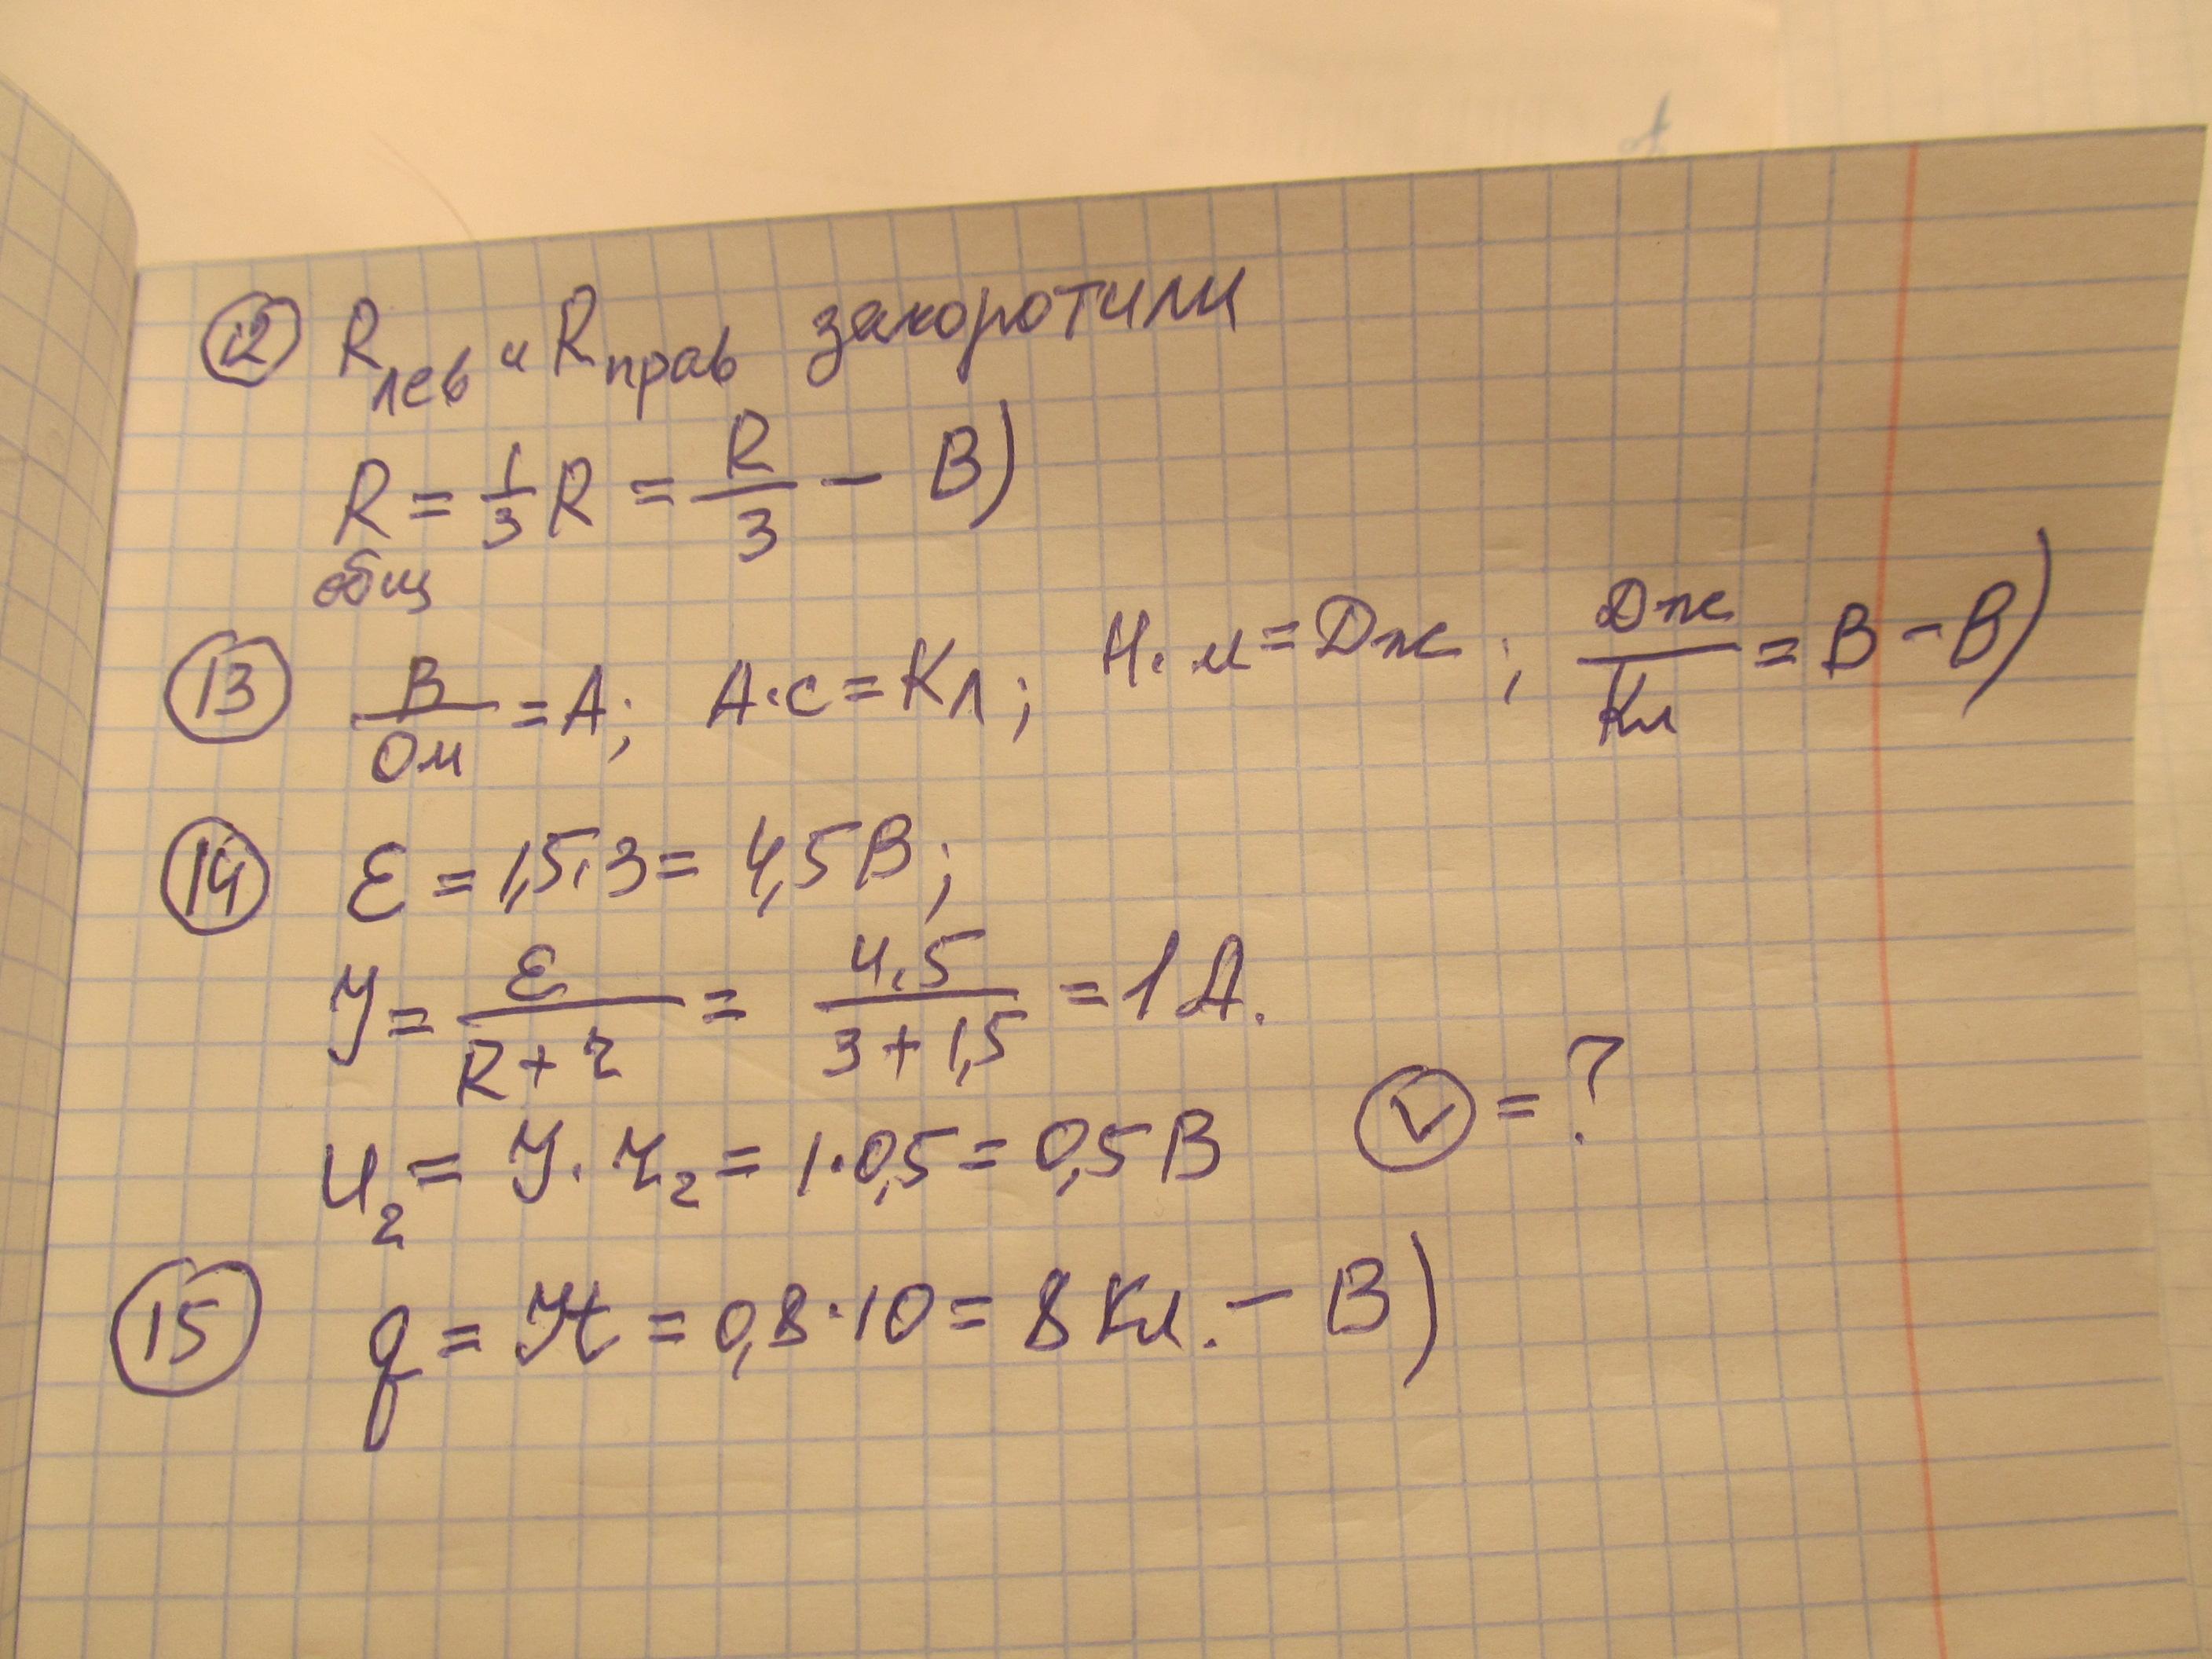 12 Rлев и Rправ закоротили
Rобщ = 1/3 R = R/3 - В)
13 В/Ом = А; А·с = Кл; Н·м = Дж; Дж/Кл = В - В)
14 ε = 1,5·3 = 4,5 В;
У = ε/(R + r) = 4,5/(3 + 1,5) = 1 А.
U2 = У·r2 = 1·0,5 = 0,5 В V = ?
15 q = Уt = 0,8·10 = 8 Кл. - В)